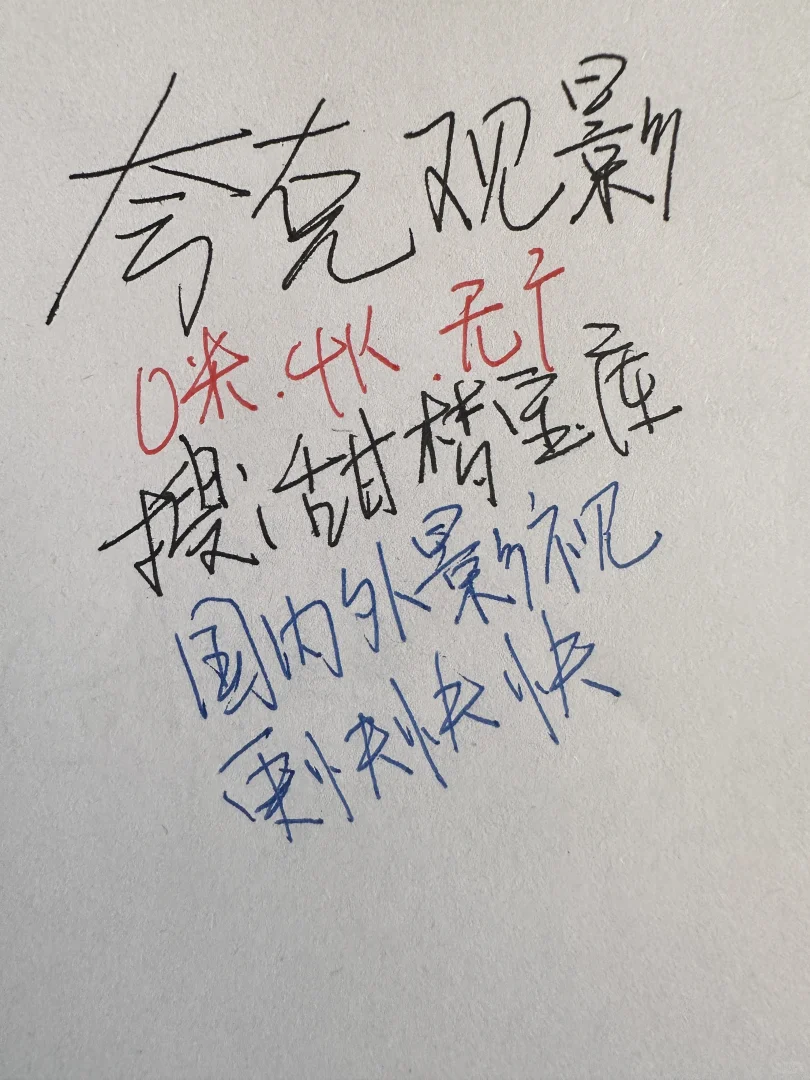 夸克观影
0米.4K.无广
搜:甜橙宝库
国内外影视
更快快快